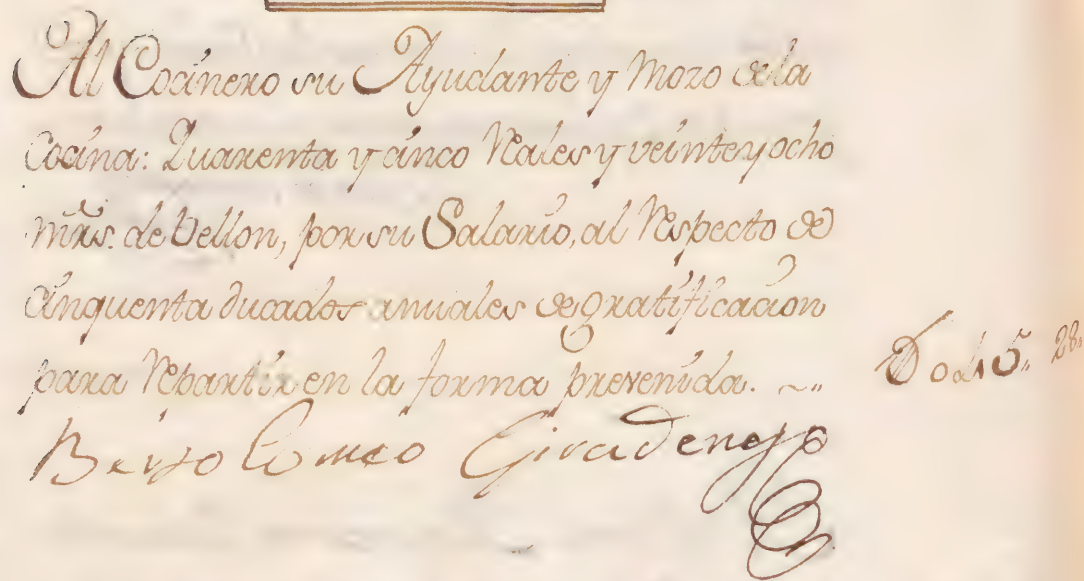 Al Cocinero su Ayudante y Mozo dela
Cocina: Quarenta y cinco Reales y veinte y ocho
mrs. de Vellon, por su Salario, al Respecto de
cinquenta ducados anuales de gratificacion
para Repartir en la forma prevenida. ~..
D o45.. 28.